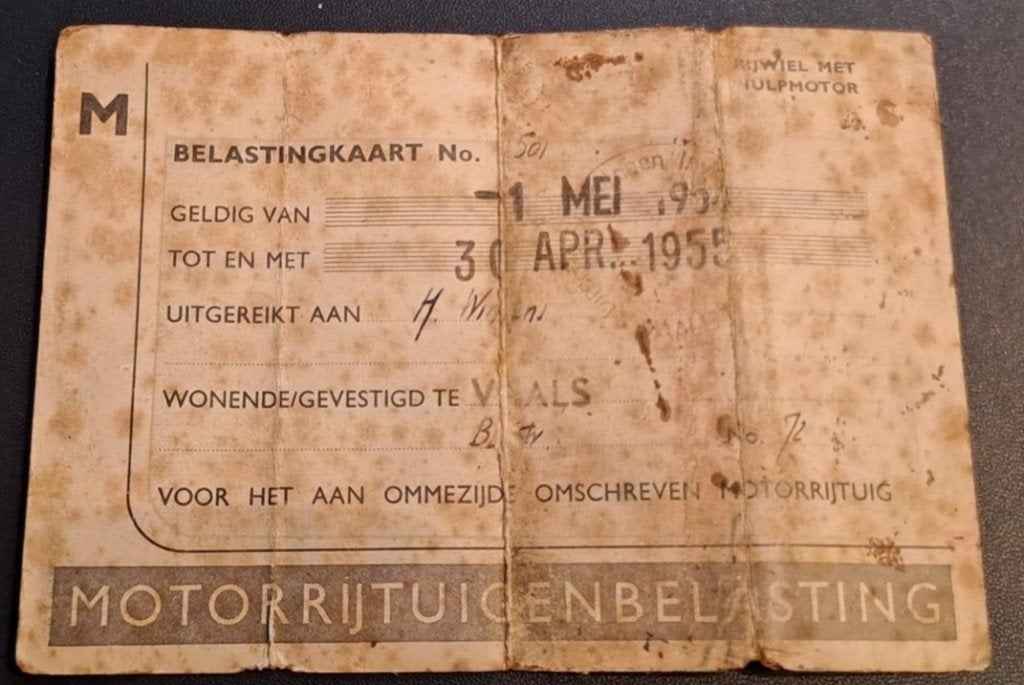 RIJWIEL MET
HULPMOTOR
M
BELASTINGKAART No. 501
GELDIG VAN -1 MEI 1954
TOT EN MET 30 APR. 1955
UITGEREIKT AAN H.
WONENDE/GEVESTIGD TE VAALS
No. 72
VOOR HET AAN OMMEZIJDE OMSCHREVEN MOTORRIJTUIG
MOTORRIJTUIGENBELASTING